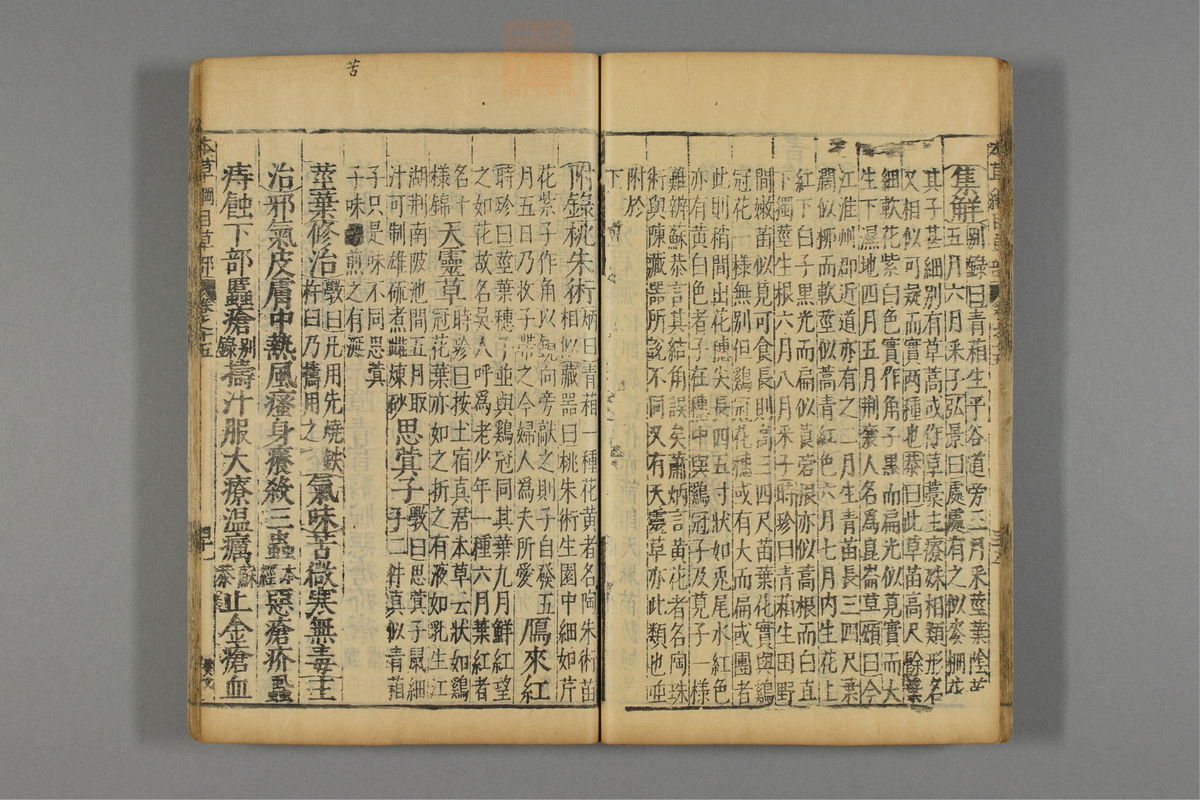 集解別錄曰青葙生平谷道旁三月采莖葉陰乾五月六月采子弘景曰處處有之似麥柵花
其子甚細別有草蒿或作草藁主療殊相類形名
又相似可疑而實兩種也恭曰此草苗高尺餘葉
細軟花紫白色實作角子黑而扁光似莧實而大
生下濕地四月五月荊襄人名為崑崙草頌曰今
江淮州郡近道亦有之二月生青苗長三四尺葉
闊似柳而軟莖似蒿青紅色六月七月內生花上
紅下白子黑光而扁似莨菪根亦似蒿根而白直
下獨莖生根六月八月采子時珍曰青葙生田野
間嫩苗似莧可食長則高三四尺苗葉花實與雞
冠花一樣無別但雞冠花穗或有大而扁或團者
此則稍間出花穗尖長四五寸狀如兔尾水紅色
亦有黃白色者子在穗中與雞冠子及莧子一樣
難辨蘇恭言其結角誤矣蕭炳言黃花者名陶珠
術與陳藏器所說不同又有天靈草亦此類也並
附於
下
附錄桃朱術炳曰青葙一種花黃者名陶朱術苗相似藏器曰桃朱術生園中細如芹
花紫子作角以鏡向旁敲之則子自發五
月五日乃收子帶之令婦人為夫所愛鴈來紅
時珍曰莖葉穗子並與雞冠同其葉九月鮮紅望
之如花故名吳人呼為老少年一種六月葉紅者
名十
樣錦天靈草時珍曰按土宿真君本草云狀如雞冠花葉亦如之折之有液如乳生江
湖荊南陂池間五月取
汁可制雄硫煮雌煉砂思蓂子斅曰思蓂子鼠細子二件真似青葙
子只是味不同思蓂
子味煎之有涎
莖葉修治斅曰凡用先燒鐵杵臼乃擣用之氣味苦微寒無毒主
治邪氣皮膚中熱風瘙身癢殺三蟲本經惡瘡疥蟲
痔蝕下部䘌瘡別錄擣汁服大療溫癘蘇恭止金瘡血
本草綱目草部
苦